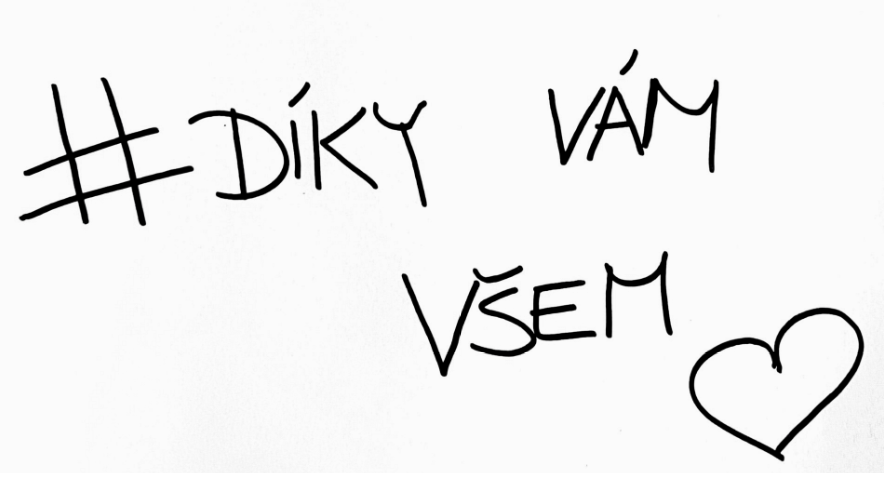 #DÍKY VÁM
VŠEM